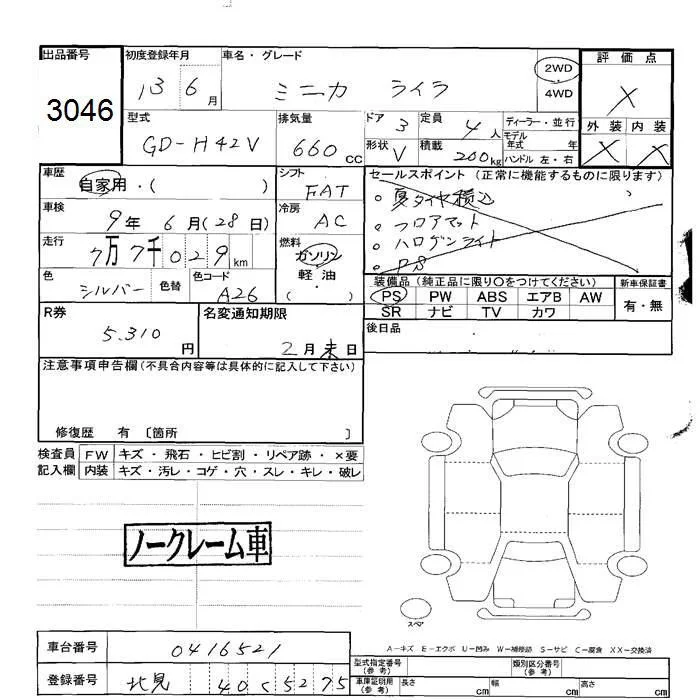 出品番号
3046
初度登録年月
13 6 月
車名・グレード
ミニカ ライラ
2WD
4WD
評価点
X
外装 内装
X X
型式
GD-H42V
排気量
660 cc
ドア 3
形状 V
定員 4 人
積載 200 kg
ディーラー・並行
モデル年式 年
ハンドル 左・右
車歴
自家用・( )
車検
9 年 6 月 (28 日)
走行
7万7千029 km
色
シルバー
色替
色コード
A26
シフト
FAT
冷房
AC
燃料
ガソリン
軽油
( )
セールスポイント(正常に機能するものに限ります)
。夏タイヤ積込
。フロアマット
。ハロゲンライト
。PS
装備品(純正品に限り○をつけてください)
PS PW ABS エアB AW
SR ナビ TV カワ
新車保証書
有・無
後日品
R券
5.310 円
名変通知期限
2月末日
注意事項申告欄(不具合内容等は具体的に記入して下さい)
修復歴 有 〔箇所 〕
検査員記入欄
FW キズ・飛石・ヒビ割・リペア跡・×要
内装 キズ・汚レ・コゲ・穴・スレ・キレ・破レ
ノークレーム車
スペア
A-キズ E-エクボ U-凹み W-補修跡 S-サビ C-腐食 XX-交換済
車台番号
0416521
登録番号
北見 40 く 5275
型式指定番号(参考)
類別区分番号(参考)
車庫証明用(参考)
長さ cm
幅 cm
高さ cm